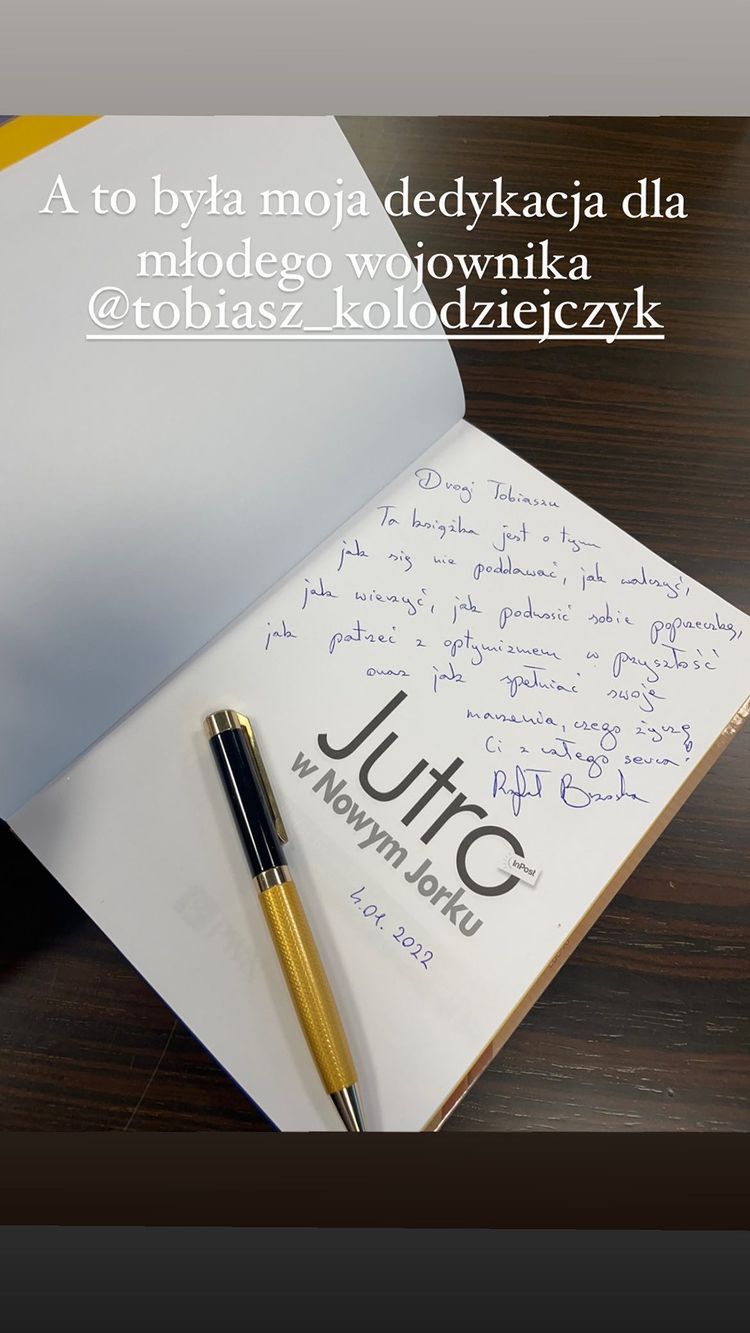 A to była moja dedykacja dla
młodego wojownika
@tobiasz_kolodziejczyk
Drogi Tobiaszu
Ta książka jest o tym
jak się nie poddawać, jak walczyć,
jak wierzyć, jak podnosić sobie poprzeczkę,
jak patrzeć z optymizmem w przyszłość
oraz jak spełniać swoje
marzenia, czego życzę
Ci z całego serca!
Rafał Brzoska
Jutro
InPost
w Nowym Jorku
4.01.2022